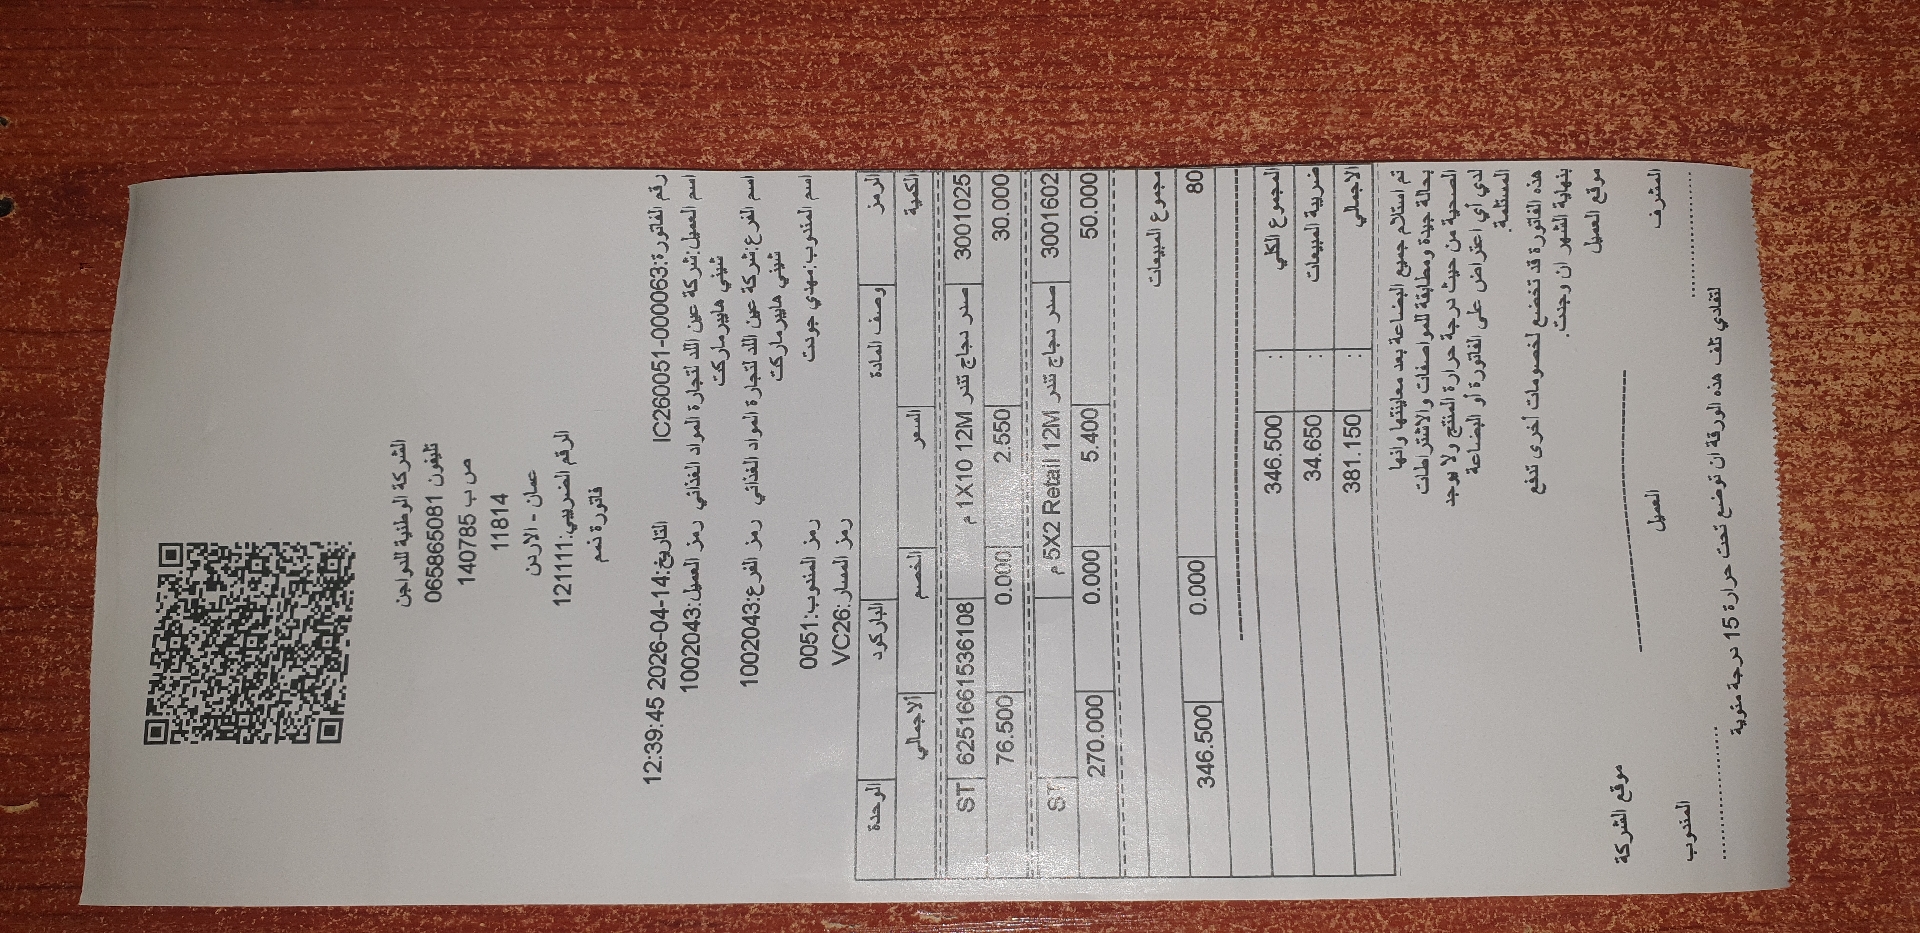 الشركة الوطنية للدواجن
تليفون 065865081
ص ب 140785
11814
عمان - الاردن
الرقم الضريبي:121111
فاتورة ذمم
رقم الفاتورة:IC260051-000063 التاريخ:2026-04-14 12:39:45
اسم العميل:شركة عين اللد لتجارة المواد الغذائي رمز العميل:1002043
شيني هايبرماركت
اسم الفرع:شركة عين اللد لتجارة المواد الغذائي رمز الفرع:1002043
شيني هايبرماركت
اسم المندوب:مهدي جودت رمز المندوب:0051
رمز المسار:VC26
الرمز وصف المادة الباركود الوحدة
الكمية السعر الخصم الاجمالي
3001025 صدر دجاج تندر 1X10 12M م 6251661536108 ST
30.000 2.550 0.000 76.500
3001602 صدر دجاج تندر 5X2 Retail 12M م ST
50.000 5.400 0.000 270.000
مجموع المبيعات
80 0.000 346.500
المجموع الكلي : 346.500
ضريبة المبيعات : 34.650
الاجمالي : 381.150
تم استلام جميع البضاعة بعد معاينتها وانها
بحالة جيدة ومطابقة للمواصفات والاشتراطات
الصحية من حيث درجة حرارة المنتج ولا يوجد
لدي أي اعتراض على الفاتورة أو البضاعة
المستلمة
هذه الفاتورة قد تخضع لخصومات أخرى تدفع
بنهاية الشهر ان وجدت.
موقع العميل موقع الشركة
المشرف العميل المندوب
لتفادي تلف هذه الورقة ان توضع تحت حرارة 15 درجة مئوية